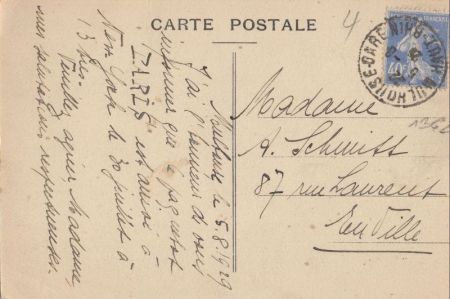 CARTE POSTALE
4
Mulhouse le 5.8.1929
J'ai l'honneur de vous
informer que le paquebot
PARIS est arrivé à
New York le 30 juillet à
13 hrs.
Veuillez agréer, Madame,
mes salutations respectueuses.
MULHOUSE-GARE
40c
Madame
A. Schmitt
87 rue Laurent
En Ville